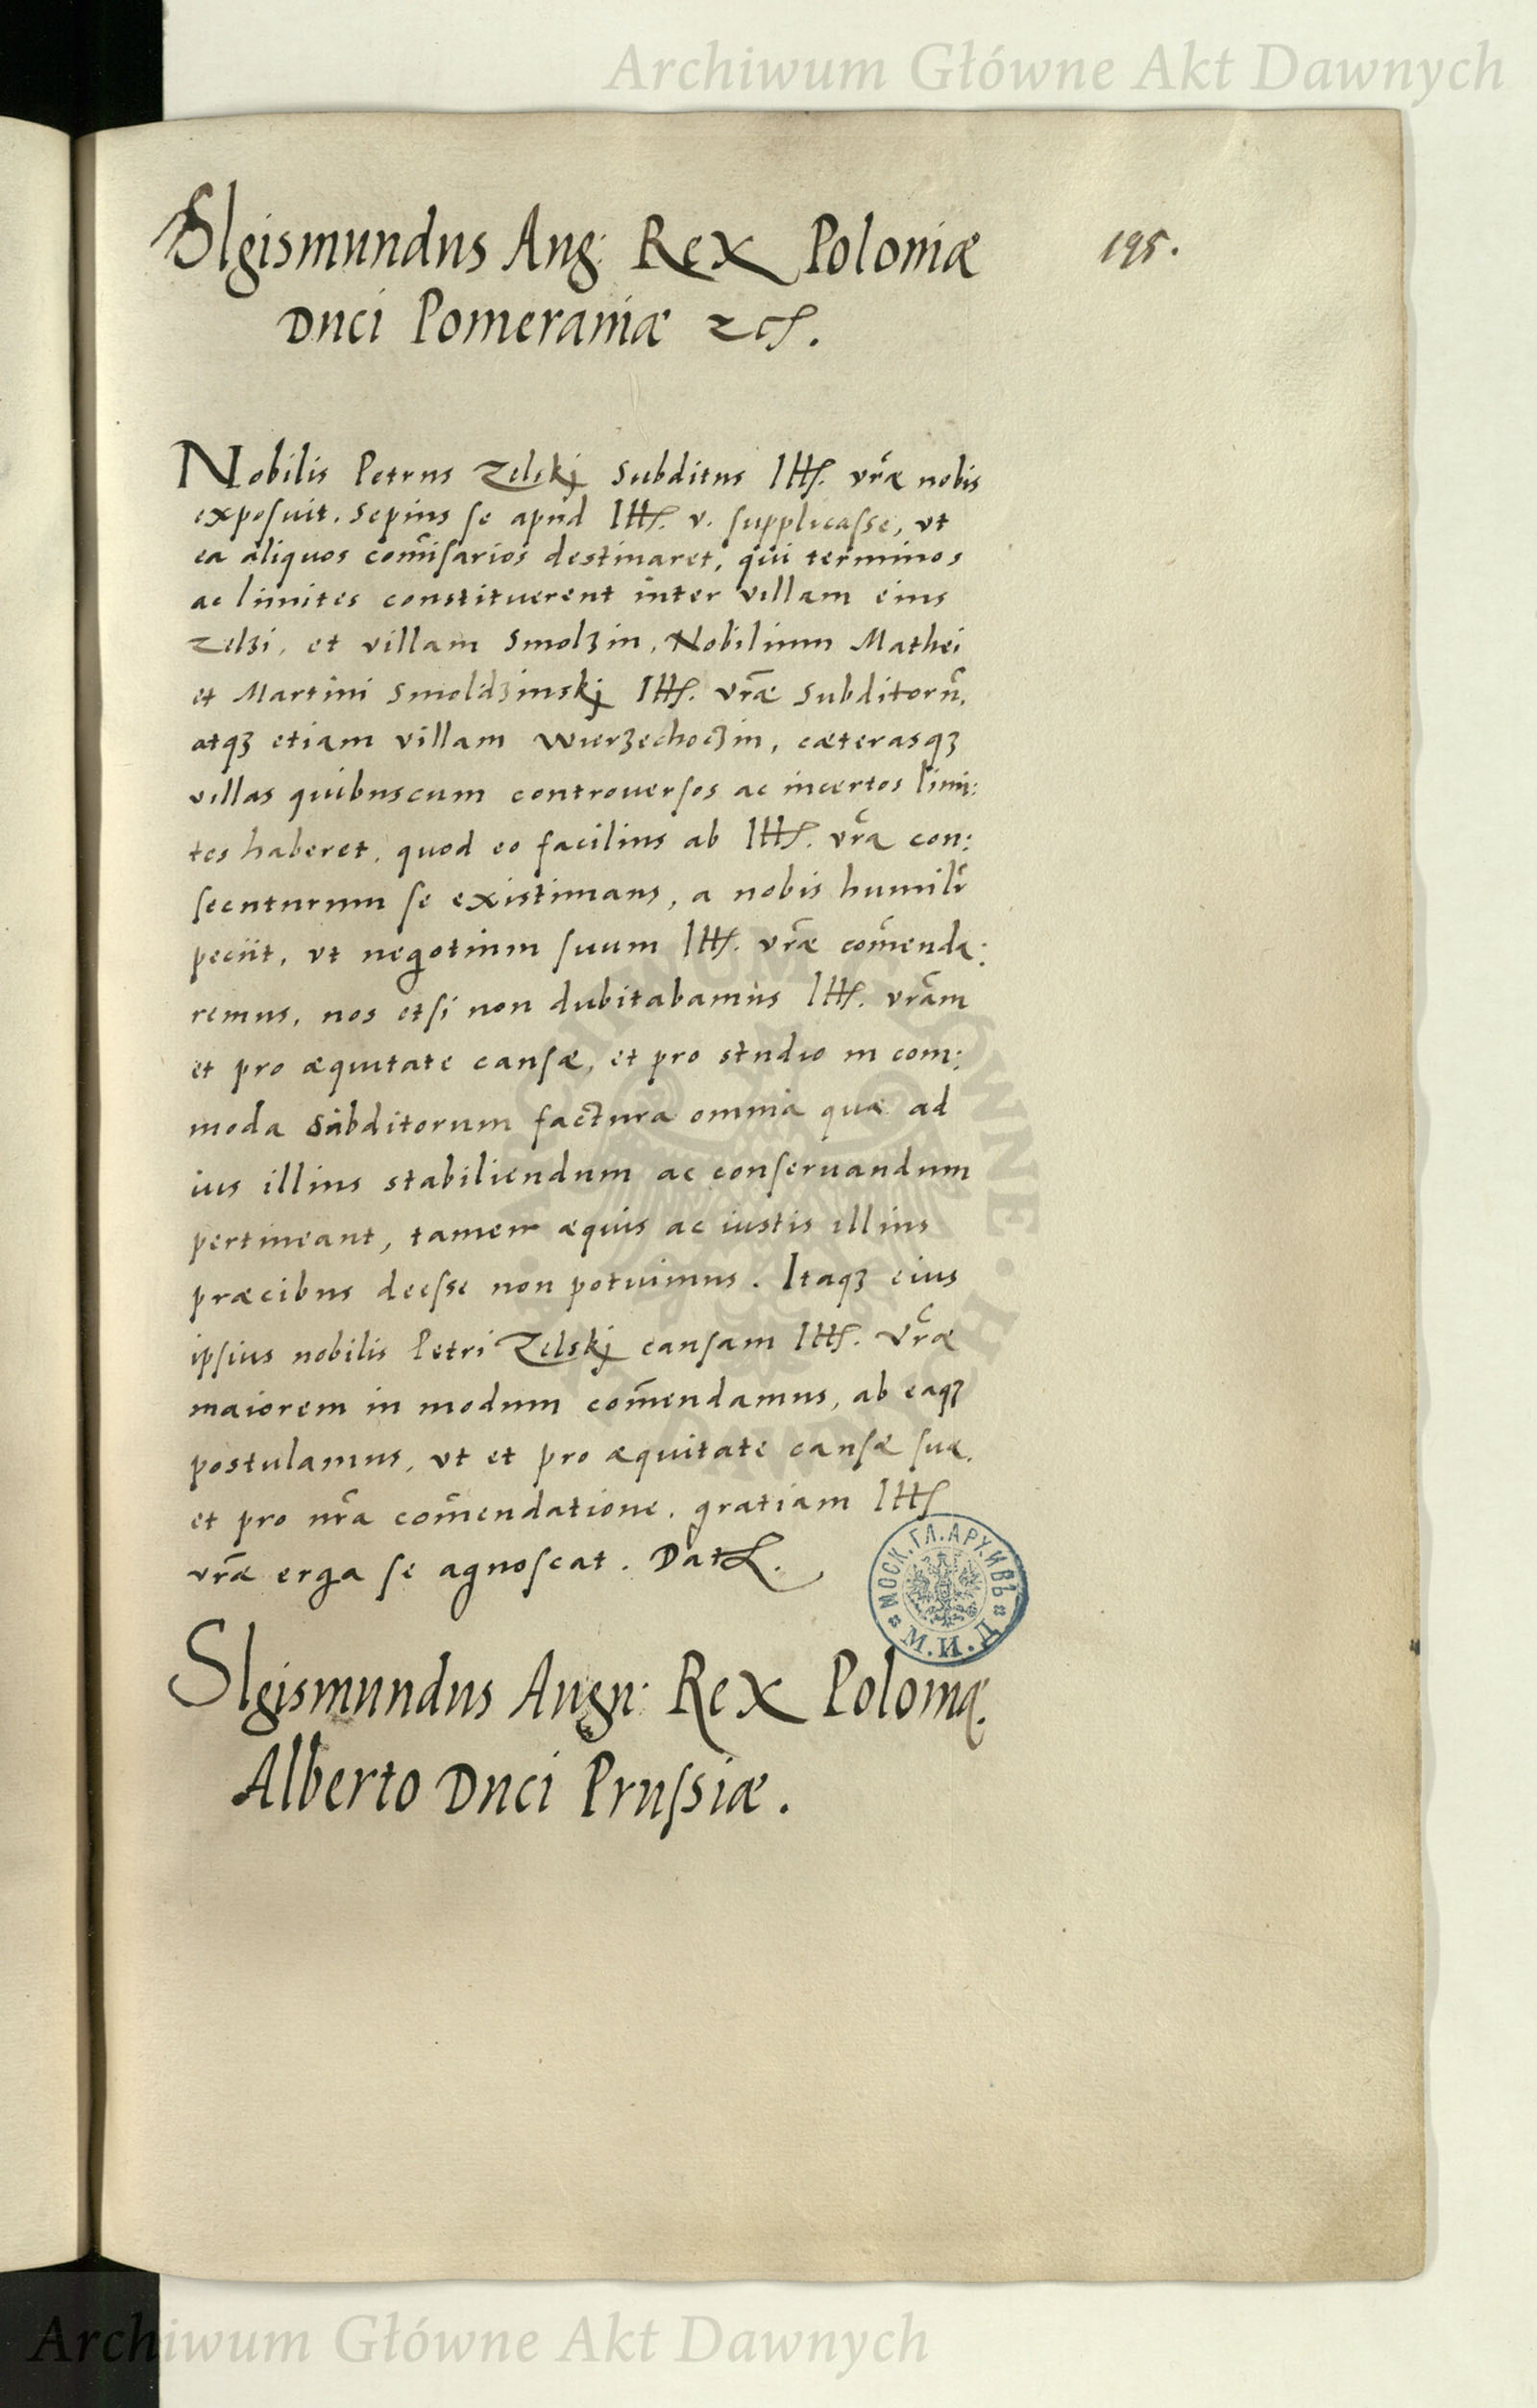 Archiwum Główne Akt Dawnych
SIgismundus Aug: Rex Poloniæ
195.
Duci Pomeraniæ
Nobilis Petrus Zelskj Subditus Ill. vr̃æ nobis
exposuit. Sepius se apud Ill. v. supplicasse, vt
ea aliquos com̃isarios destinaret, qui terminos
ac limites constituerent inter villam eius
Zelʒi, et villam Smolʒin, Nobilium Mathei
et Martini Smoldʒinskj Ill. vr̃æ Subditorũ,
atqʒ etiam villam Wierʒechocʒin, cæterasqʒ
villas quibuscum controuersos ac incertos limi:
tes haberet, quod eo facilius ab Ill. vr̃a con:
secuturum se existimans, a nobis humilr̃
peciit, vt negotium suum Ill. vr̃æ com̃enda:
remus, nos etsi non dubitabamus Ill. vr̃am
et pro æquitate causæ, et pro studio in com:
moda Subditorum factura omnia quæ ad
ius illius stabiliendum ac conseruandum
pertineant, tamen æquis ac iustis illius
præcibus deesse non potuimus. Itaqʒ eius
ipsius nobilis Petri Zelskj causam Ill. Vr̃æ
maiorem in modum com̃endamus, ab eaqʒ
postulamus, vt et pro æquitate causæ suæ,
et pro nr̃a com̃endatione, gratiam Ill
vr̃æ erga se agnoscat. Dat.
МОСК. ГЛ. АРХИВЪ
М. И. Д
SIgismundus Augu: Rex Poloniæ.
Alberto Duci Prussiæ.
Archiwum Główne Akt Dawnych